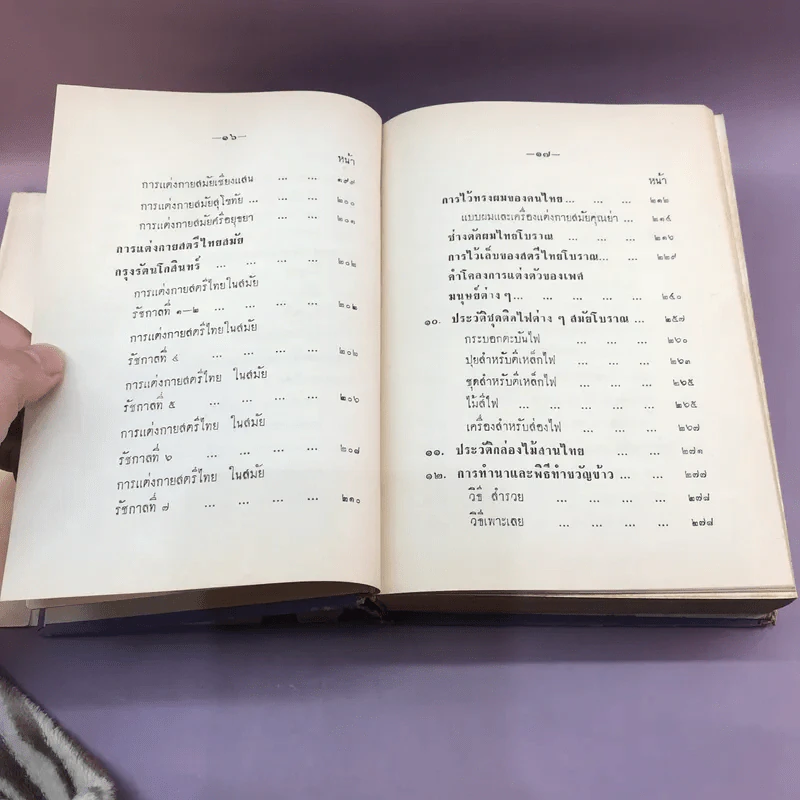 —๑๖—
หน้า
การแต่งกายสมัยเชียงแสน ... ... ... ๑๙๙
การแต่งกายสมัยสุโขทัย ... ... ... ๒๐๐
การแต่งกายสมัยศรีอยุธยา ... ... ... ๒๐๑
การแต่งกายสตรีไทยสมัย
กรุงรัตนโกสินทร์ ... ... ... ... ๒๐๒
การแต่งกายสตรีไทยในสมัย
รัชกาลที่ ๑—๒ ... ... ... ... ๒๐๒
การแต่งกายสตรีไทยในสมัย
รัชกาลที่ ๔ ... ... ... ... ๒๐๒
การแต่งกายสตรีไทย ในสมัย
รัชกาลที่ ๕ ... ... ... ... ๒๐๖
การแต่งกายสตรีไทย ในสมัย
รัชกาลที่ ๖ ... ... ... ... ๒๐๘
การแต่งกายสตรีไทย ในสมัย
รัชกาลที่ ๗ ... ... ... ... ๒๑๐
—๑๗—
หน้า
การไว้ทรงผมของคนไทย ... ... ... ๒๑๒
แบบผมและเครื่องแต่งกายสมัยคุณย่า ... ๒๑๔
ช่างดัดผมไทยโบราณ ... ... ... ๒๑๖
การไว้เล็บของสตรีไทยโบราณ... ... ๒๒๙
คำโคลงการแต่งตัวของเพศ
มนุษย์ต่าง ๆ ... ... ... ... ๒๔๐
๑๐. ประวัติชุดติดไฟต่าง ๆ สมัยโบราณ ... ๒๕๗
กระบอกตะบันไฟ ... ... ... ๒๖๐
ปุยสำหรับตีเหล็กไฟ ... ... ... ๒๖๓
ชุดสำหรับตีเหล็กไฟ ... ... ... ๒๖๕
ไม้สีไฟ ... ... ... ... ๒๖๕
เครื่องสำหรับส่องไฟ ... ... ... ๒๖๗
๑๑. ประวัติกล่องไม้สานไทย ... ... ๒๗๑
๑๒. การทำนาและพิธีทำขวัญข้าว ... ... ๒๗๗
วิธี สำรวย ... ... ... ... ๒๗๘
วิธีเพาะเลย ... ... ... ... ๒๗๘